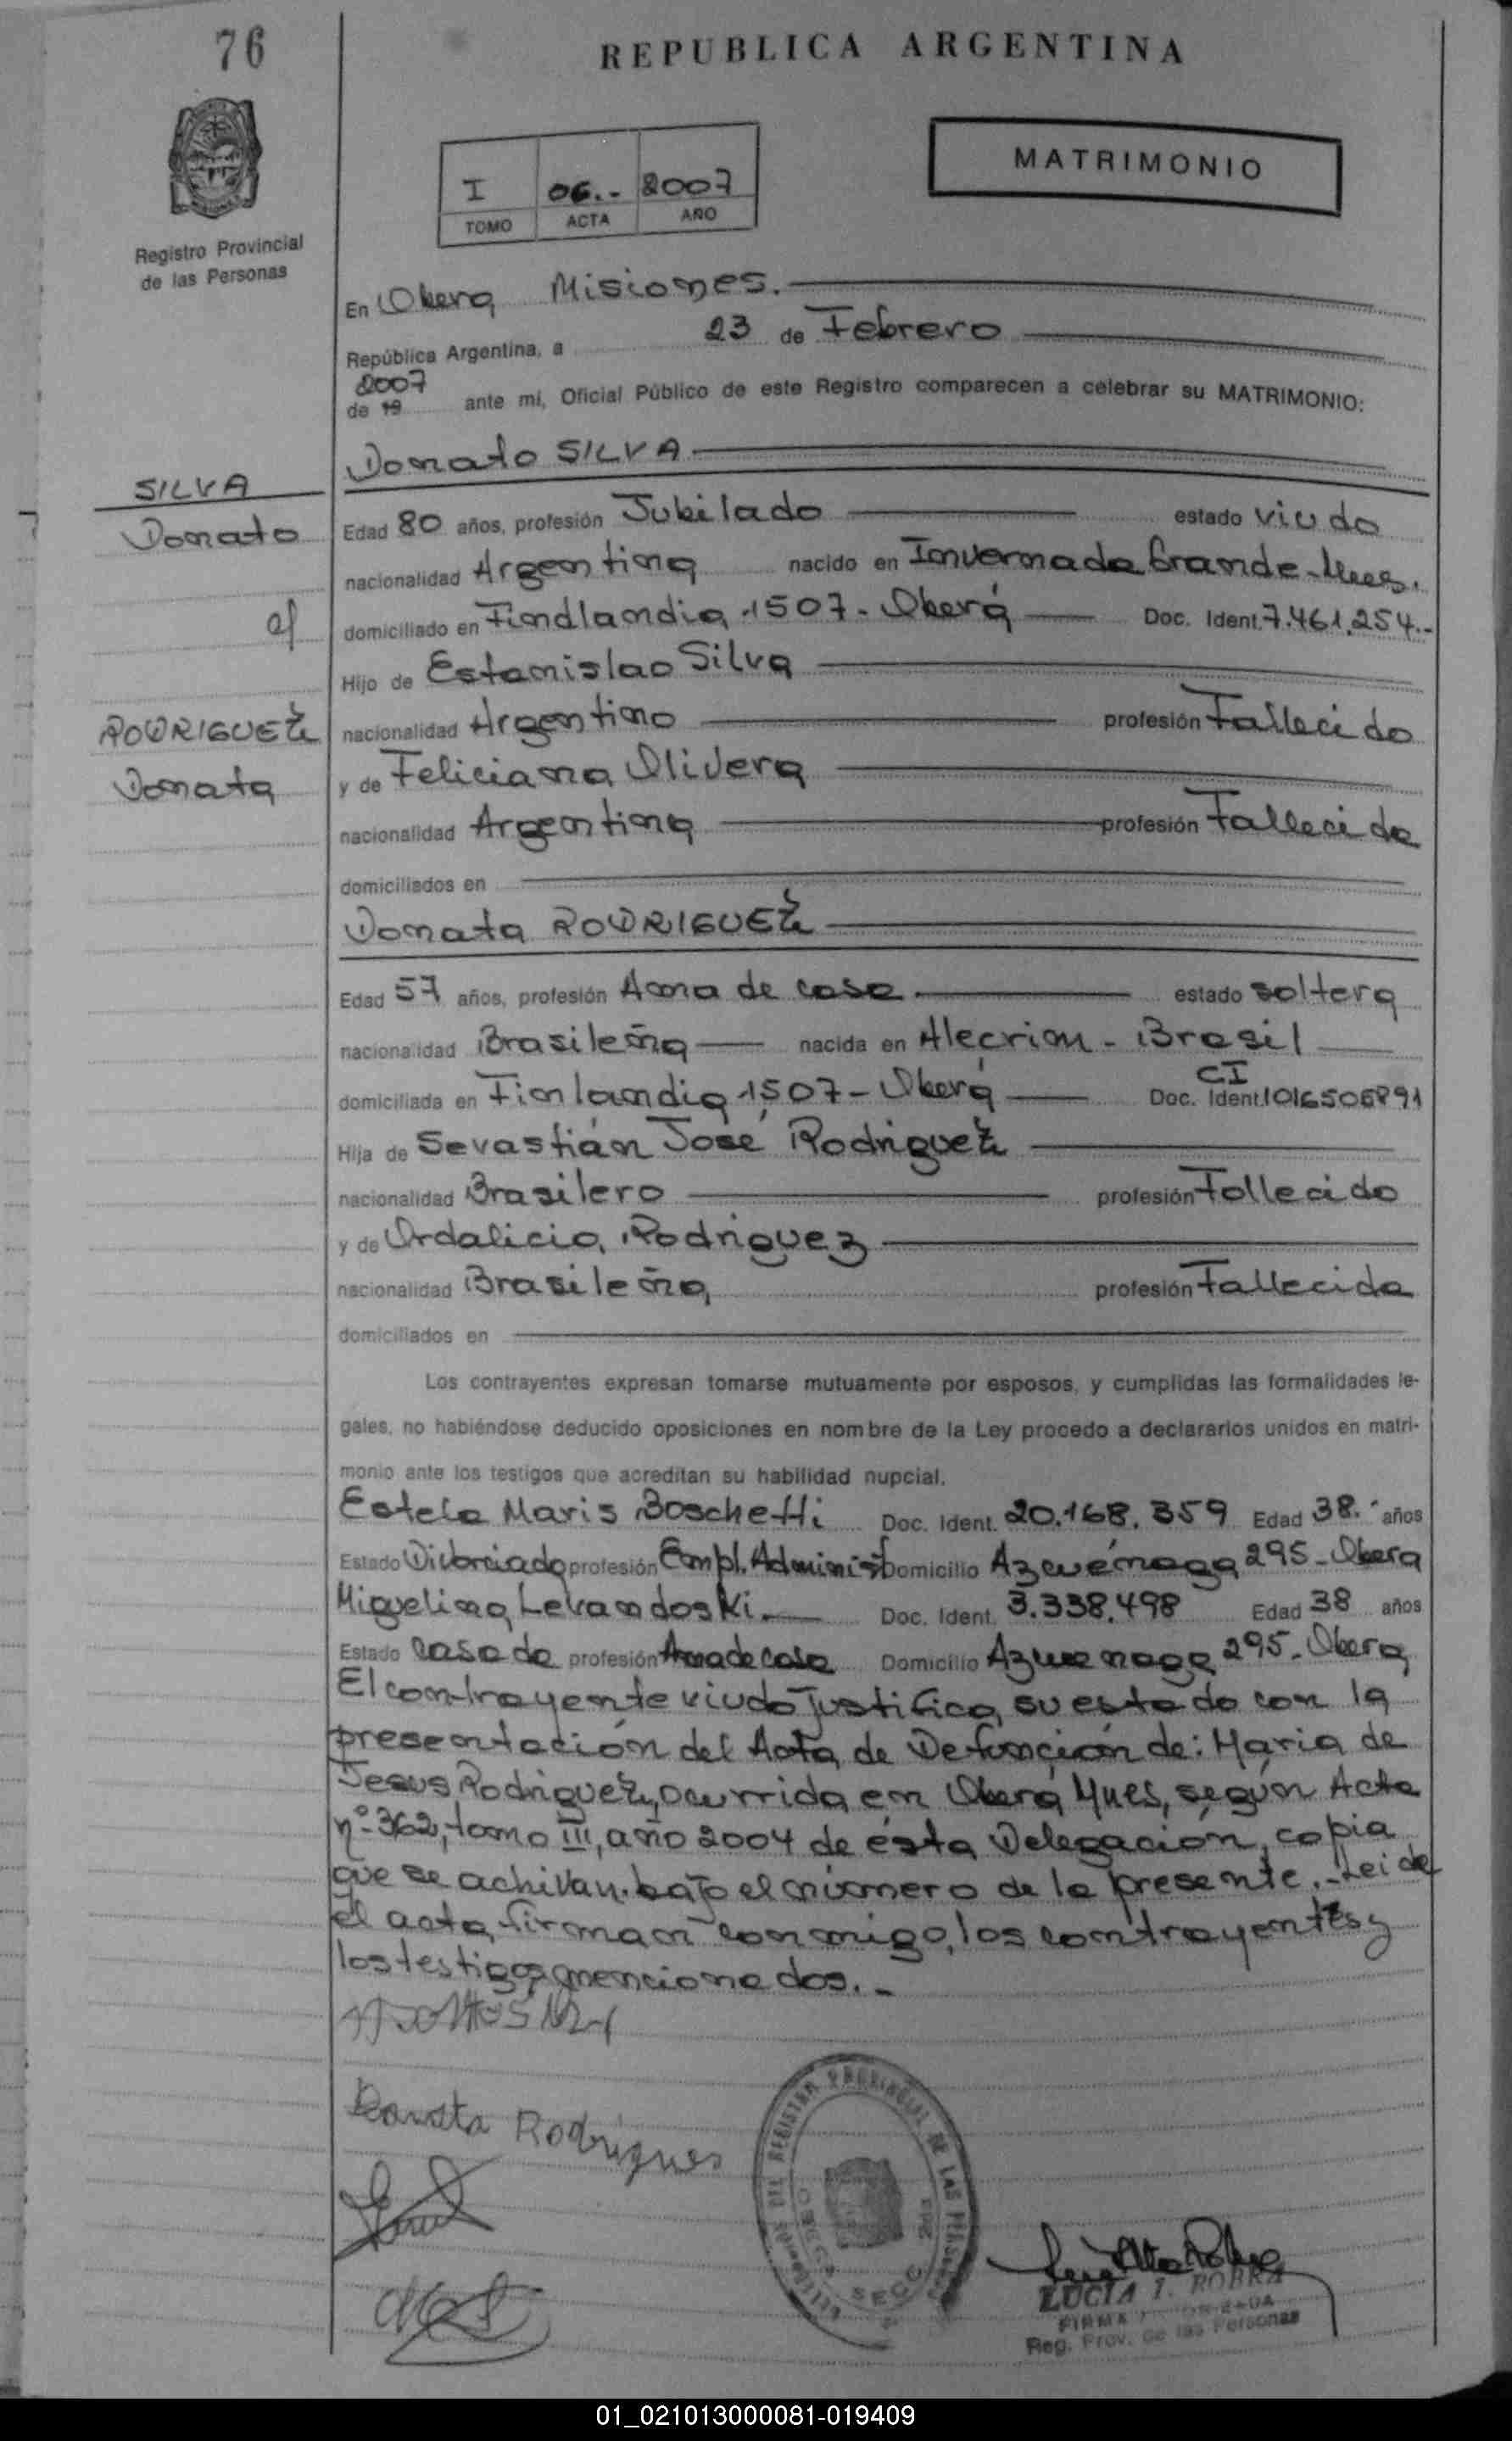 76
REPUBLICA ARGENTINA
MATRIMONIO
I 06.- 2007
TOMO ACTA AÑO
Registro Provincial
de las Personas
En Obera Misiones.
República Argentina, a 23 de Febrero
2007
de 19 ante mí, Oficial Público de este Registro comparecen a celebrar su MATRIMONIO:
Donato SILVA
SILVA
Donato
c/
RODRIGUEZ
Donata
Edad 80 años, profesión Jubilado estado viudo
nacionalidad Argentina nacido en Invernada Grande-Mnes.
domiciliado en Findlandia 1507- Oberá Doc. Ident. 7.461.254.-
Hijo de Estanislao Silva
nacionalidad Argentino profesión Fallecido
y de Feliciana Olivera
nacionalidad Argentina profesión Fallecida
domiciliados en
Donata RODRIGUEZ
Edad 57 años, profesión Ama de casa estado soltera
nacionalidad Brasileña nacida en Alecrim - Brasil
CI
domiciliada en Finlandia 1507- Oberá Doc. Ident. 1016506891
Hija de Sevastián José Rodriguez
nacionalidad Brasilero profesión Fallecido
y de Ordalicia Rodriguez
nacionalidad Brasileña profesión Fallecida
domiciliados en
Los contrayentes expresan tomarse mutuamente por esposos, y cumplidas las formalidades le-
gales, no habiéndose deducido oposiciones en nombre de la Ley procedo a declararlos unidos en matri-
monio ante los testigos que acreditan su habilidad nupcial.
Estela Maris Boschetti Doc. Ident. 20.168.359 Edad 38.- años
Estado Divorciada profesión Empl. Administ Domicilio Azcuénaga 295- Obera
Miguelina Lekandoski.- Doc. Ident. 3.338.498 Edad 38 años
Estado Casada profesión Ama de casa Domicilio Azcuenaga 295- Obera
El contrayente viudo justifica su estado con la
presentación del Acta de Defunción de: Maria de
Jesus Rodriguez, ocurrida en Oberá Mnes, según Acta
nº 362, tomo III, año 2004 de ésta Delegación, copia
que se achivan bajo el número de la presente.- Leida
el acta firman conmigo, los contrayentes y
los testigos mencionados.-
Donata Rodrigues
REGISTRO PROVINCIAL DE LAS PERSONAS
SECC
LUCIA I. ROBRA
Reg. Prov. de las Personas
01_021013000081-019409